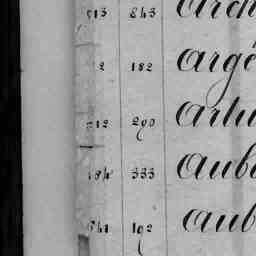 513 843 Arch
2 182 Argé
512 290 Arthu
184 333 Aub
541 192 Aub